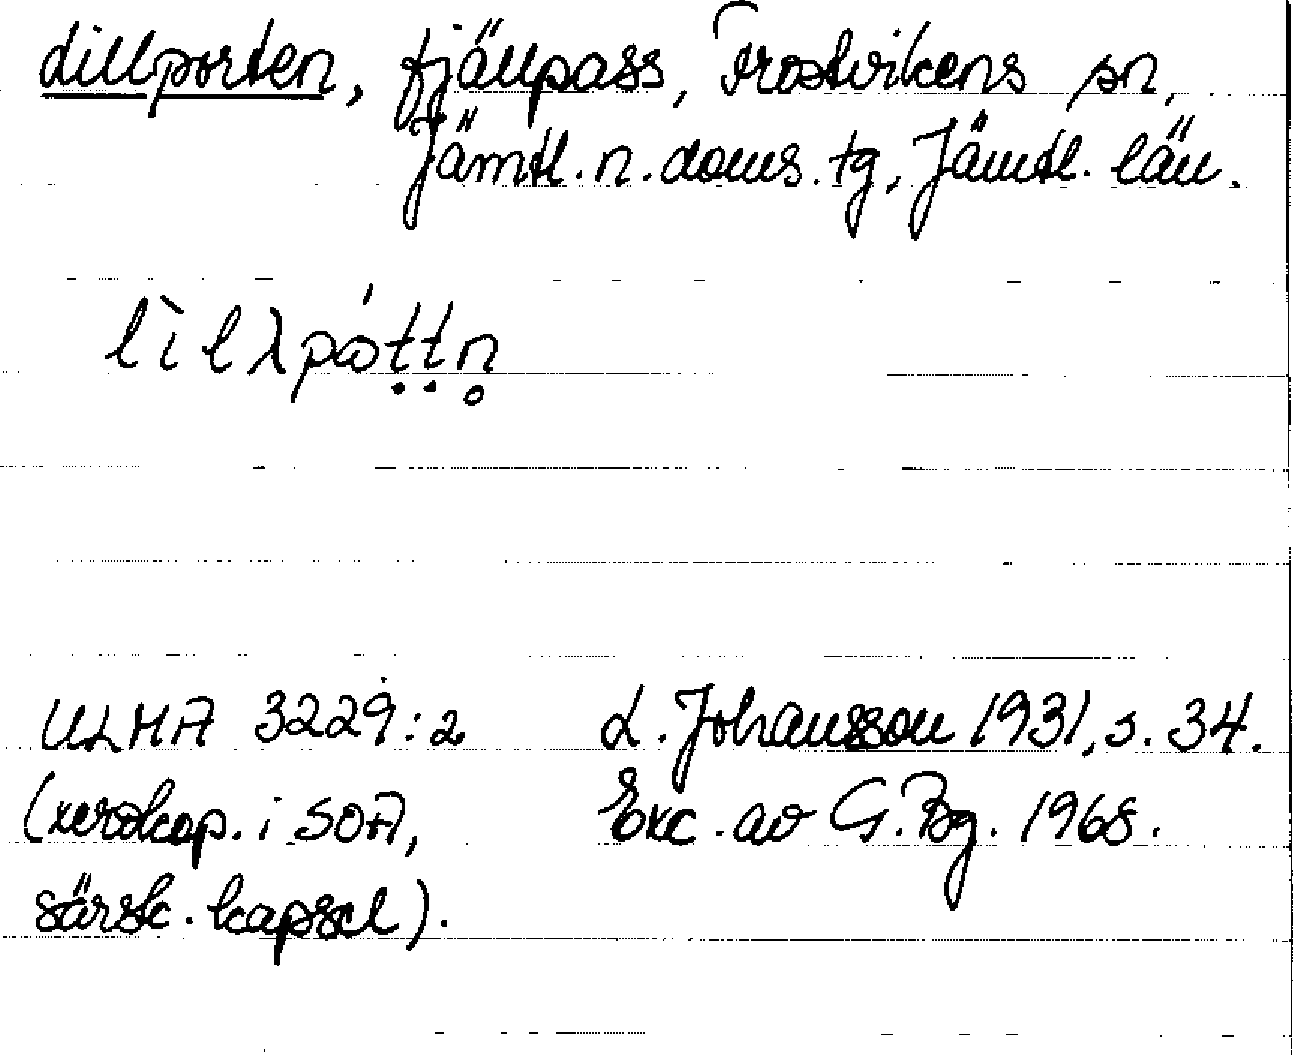 Lillporten, fjällpass, Frostvikens sn,
Jämtl. n. doms. tg, Jämtl. län.
lìlλpáttn
ULMA 3229:2 L. Johansson 1931, s. 34.
(xerokop. i SOA, Exc. av G. Bg. 1968.
särsk. kapsel).